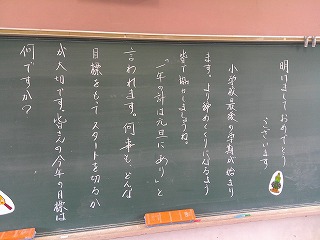 明けましておめでとう
ございます。
小学校最後の学期が始まり
ます。より締めくくりになるよう
皆で協力しましょうね。
「一年の計は元旦にあり」と
言われます。何事も、どんな
目標をもってスタートを切るか
が大切です。皆さんの今年の目標は
何ですか？